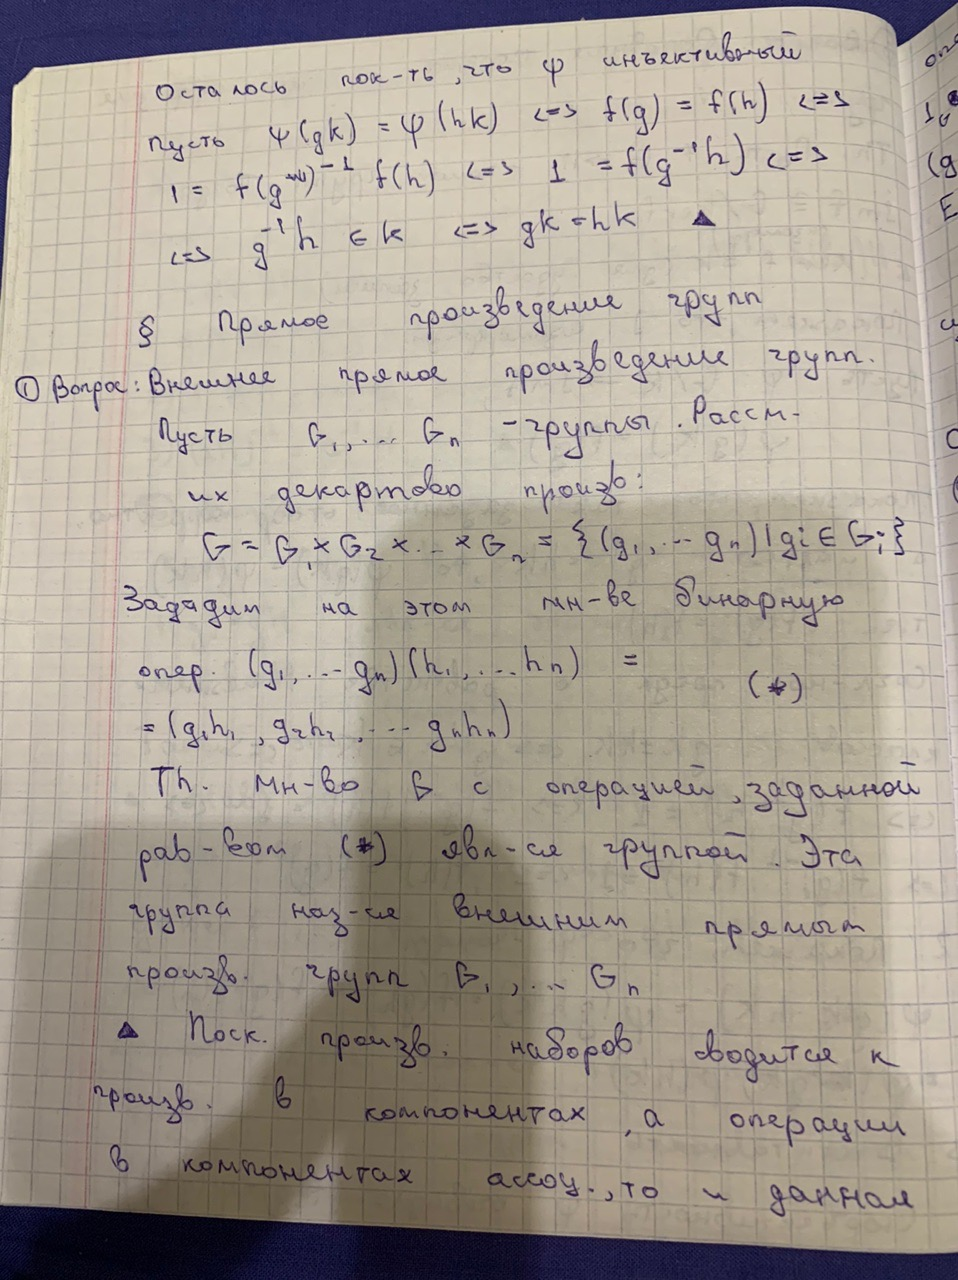 Осталось пок-ть, что ψ инъективный
Пусть ψ(gk) = ψ(hk) <=> f(g) = f(h) <=>
1 = f(g)⁻¹ f(h) <=> 1 = f(g⁻¹h) <=>
<=> g⁻¹h ∈ k <=> gk = hk ▲
§ Прямое произведение групп
① Вопрос: Внешнее прямое произведение групп.
Пусть G₁,... Gₙ - группы. Рассм-
их декартово произв:
G = G₁ × G₂ × ... × Gₙ = {(g₁,... gₙ) | gi ∈ Gᵢ}
Зададим на этом мн-ве бинарную
опер. (g₁,... gₙ)(h₁,... hₙ) =
(*)
= (g₁h₁, g₂h₂, ... gₙhₙ)
Th. Мн-во G с операцией, заданной
рав-вом (*) явл-ся группой. Эта
группа наз-ся внешним прямым
произв. групп G₁,... Gₙ
▲ Поск. произв. наборов сводится к
произв. в компонентах, а операции
в компонентах ассоц., то и данная